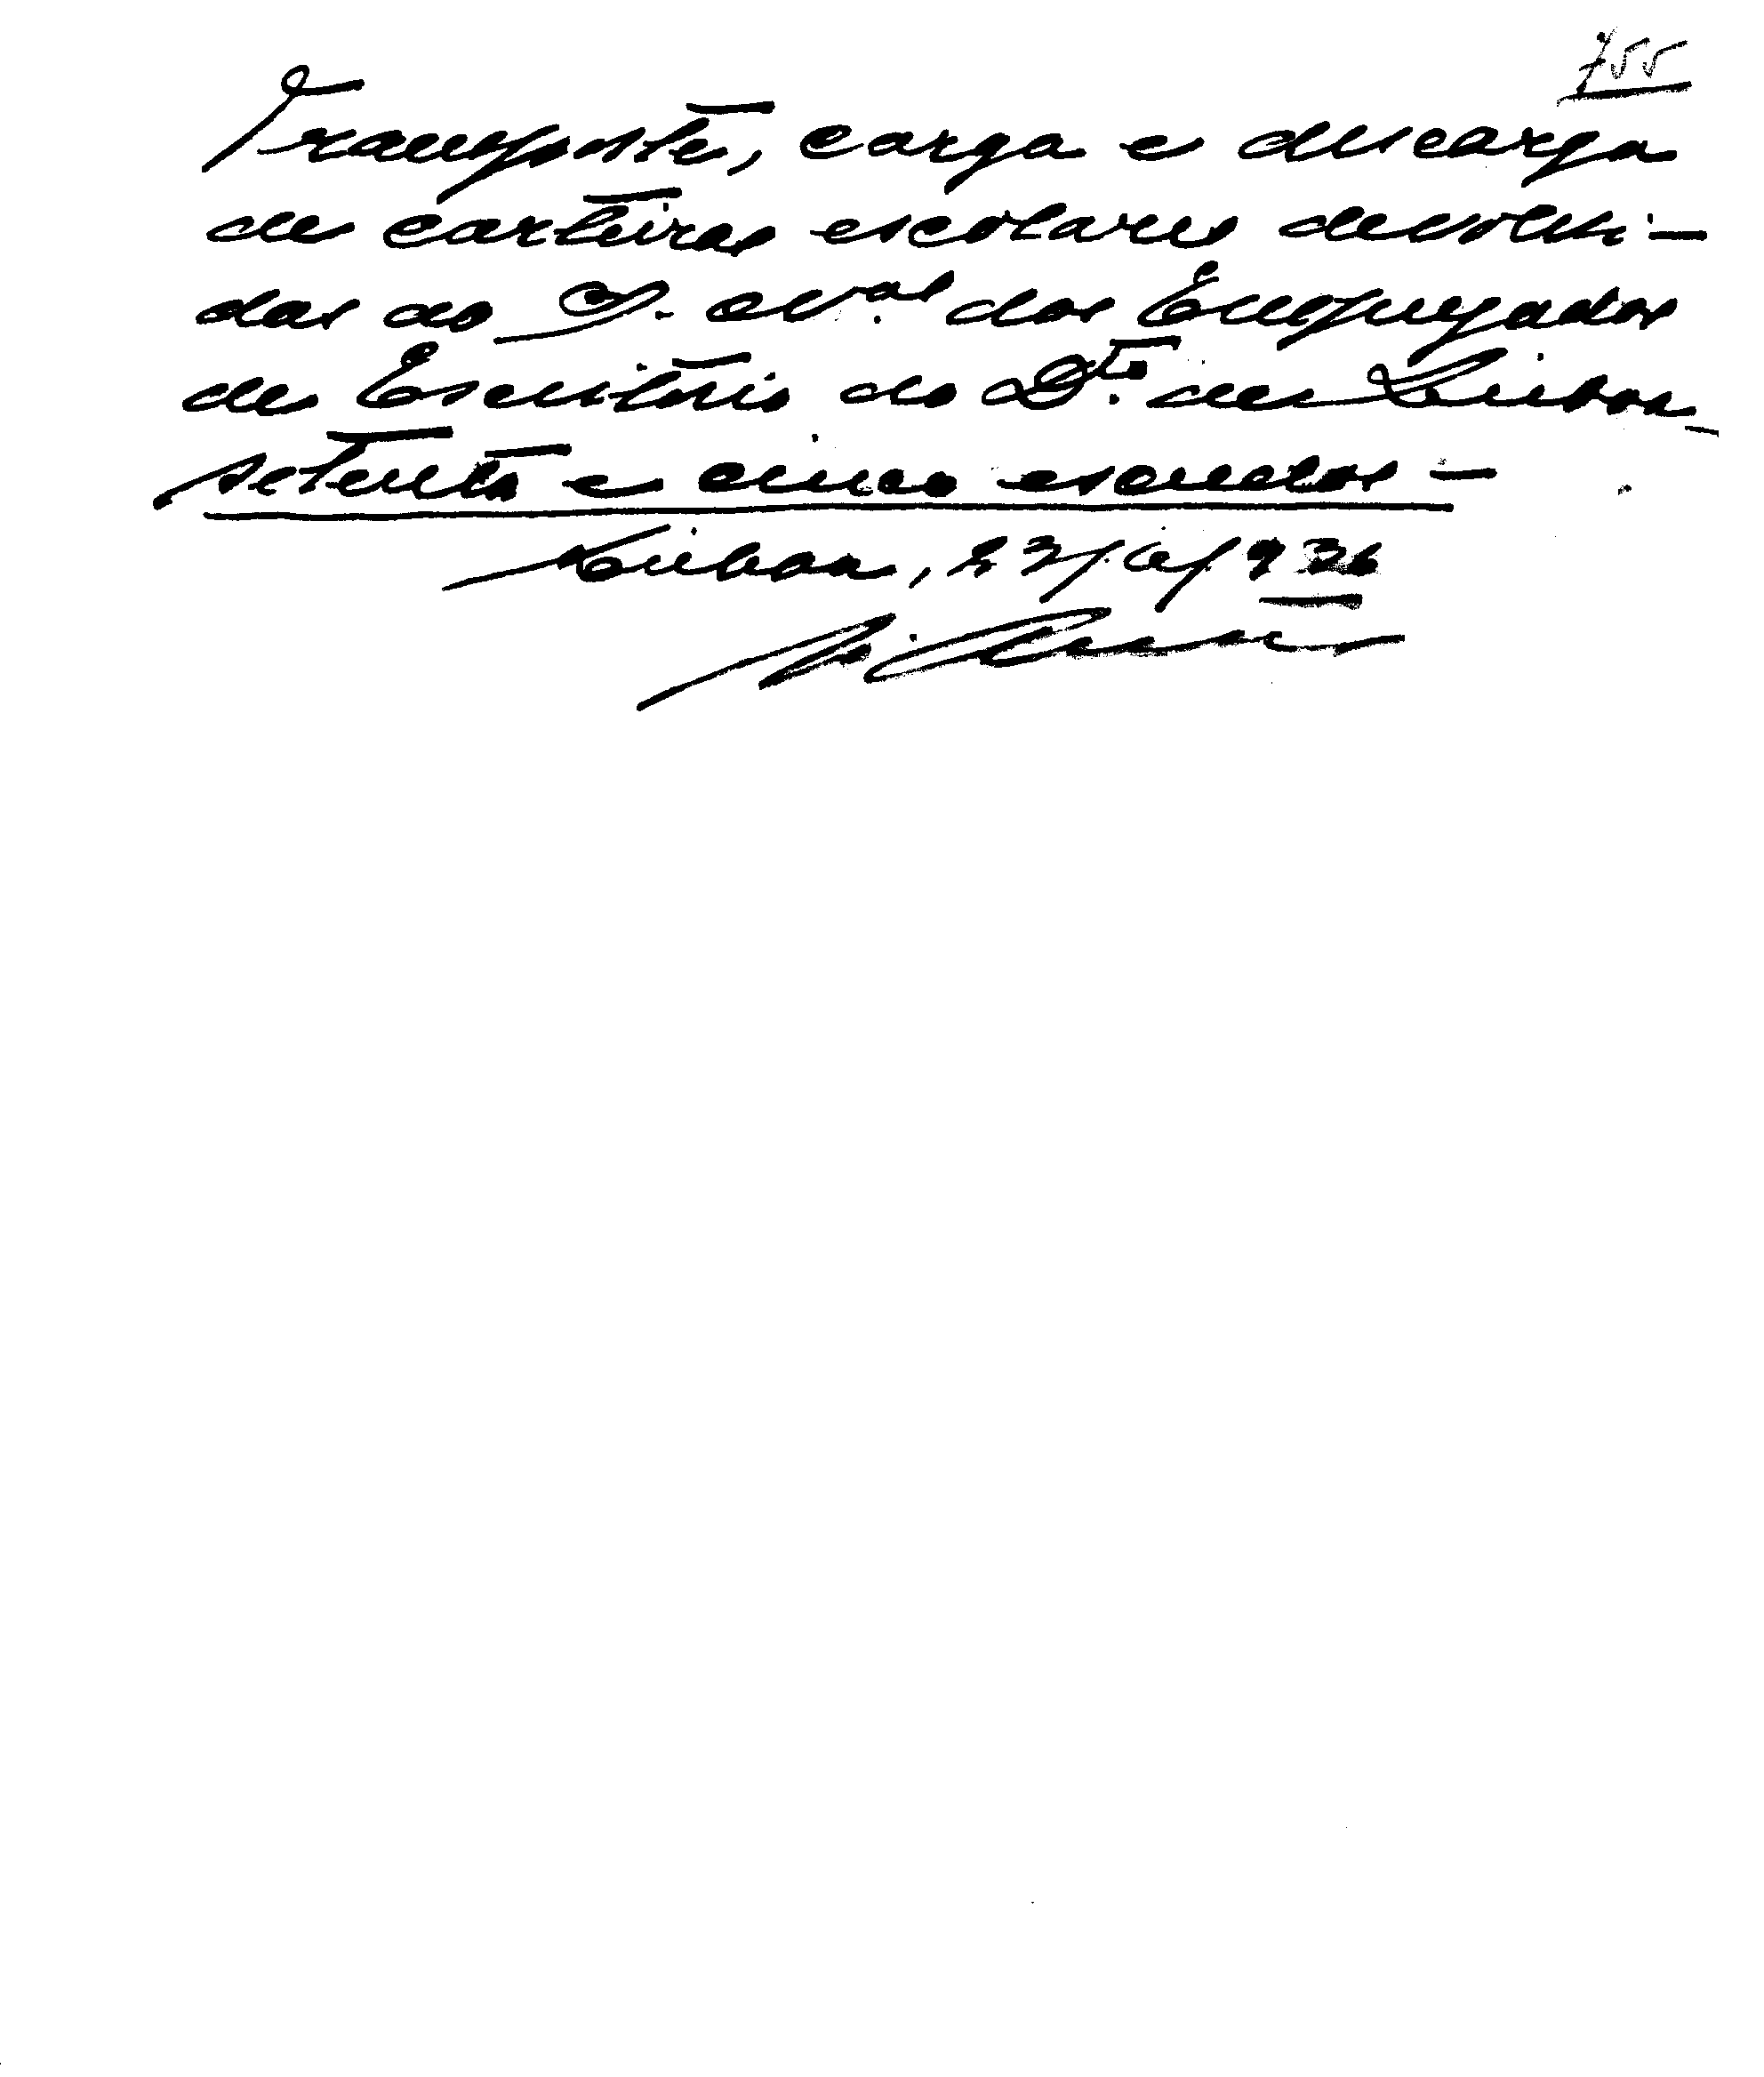 755
Transporte, carga e descarga
de carteiras escolares devolvi-
das ao S. N.al dos Empregados
de Escritório do D.to de Lisboa
setenta e cinco escudos —
Lisboa, 23/6/936